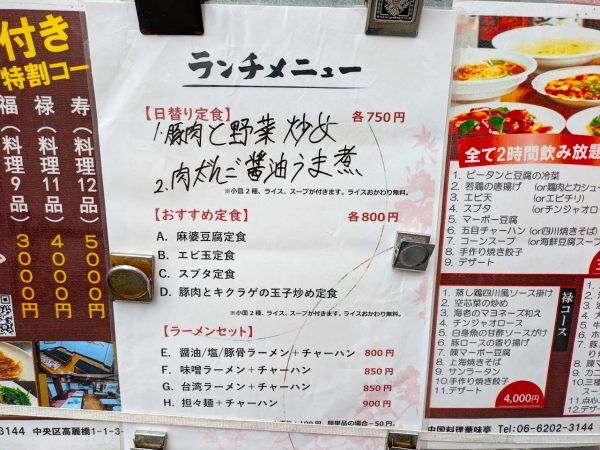 付き
特割コー
福（料理9品）3000円
禄（料理11品）4000円
寿（料理12品）5000円
3144 中央区高麗橋1-1-3
ランチメニュー
【日替り定食】 各750円
1.豚肉と野菜炒め
2.肉だんご醤油うま煮
※小皿2種、ライス、スープが付きます。ライスおかわり無料。
【おすすめ定食】 各800円
A．麻婆豆腐定食
B．エビ玉定食
C．スブタ定食
D．豚肉とキクラゲの玉子炒め定食
※小皿2種、ライス、スープが付きます。ライスおかわり無料。
【ラーメンセット】
E．醤油/塩/豚骨ラーメン＋チャーハン 800円
F．味噌ラーメン＋チャーハン 850円
G．台湾ラーメン＋チャーハン 850円
H．担々麺＋チャーハン 900円
全て2時間飲み放題
1. ピータンと豆腐の冷菜
2. 若鶏の唐揚げ (or鶏肉とカシュー
3. エビ天 (orエビチリ)
4. スブタ (orチンジャオロー
5. マーボー豆腐
6. 五目チャーハン (or四川焼きそば)
7. コーンスープ (or海鮮豆腐スープ
8. 手作り焼き餃子
9. デザート
禄コース
1. 蒸し鶏四川風ソース掛け
2. 空芯菜の炒め
3. 海老のマヨネーズ和え
4. チンジャオロース
5. 白身魚の甘酢ソースがけ
6. 豚ロースの香り揚げ
7. 陳マーボー豆腐
8. 上海焼きそば
9. サンラータン
10.手作り焼き餃子
11.デザート
4,000円
中国料理華味亭 Tel:06-6202-3144